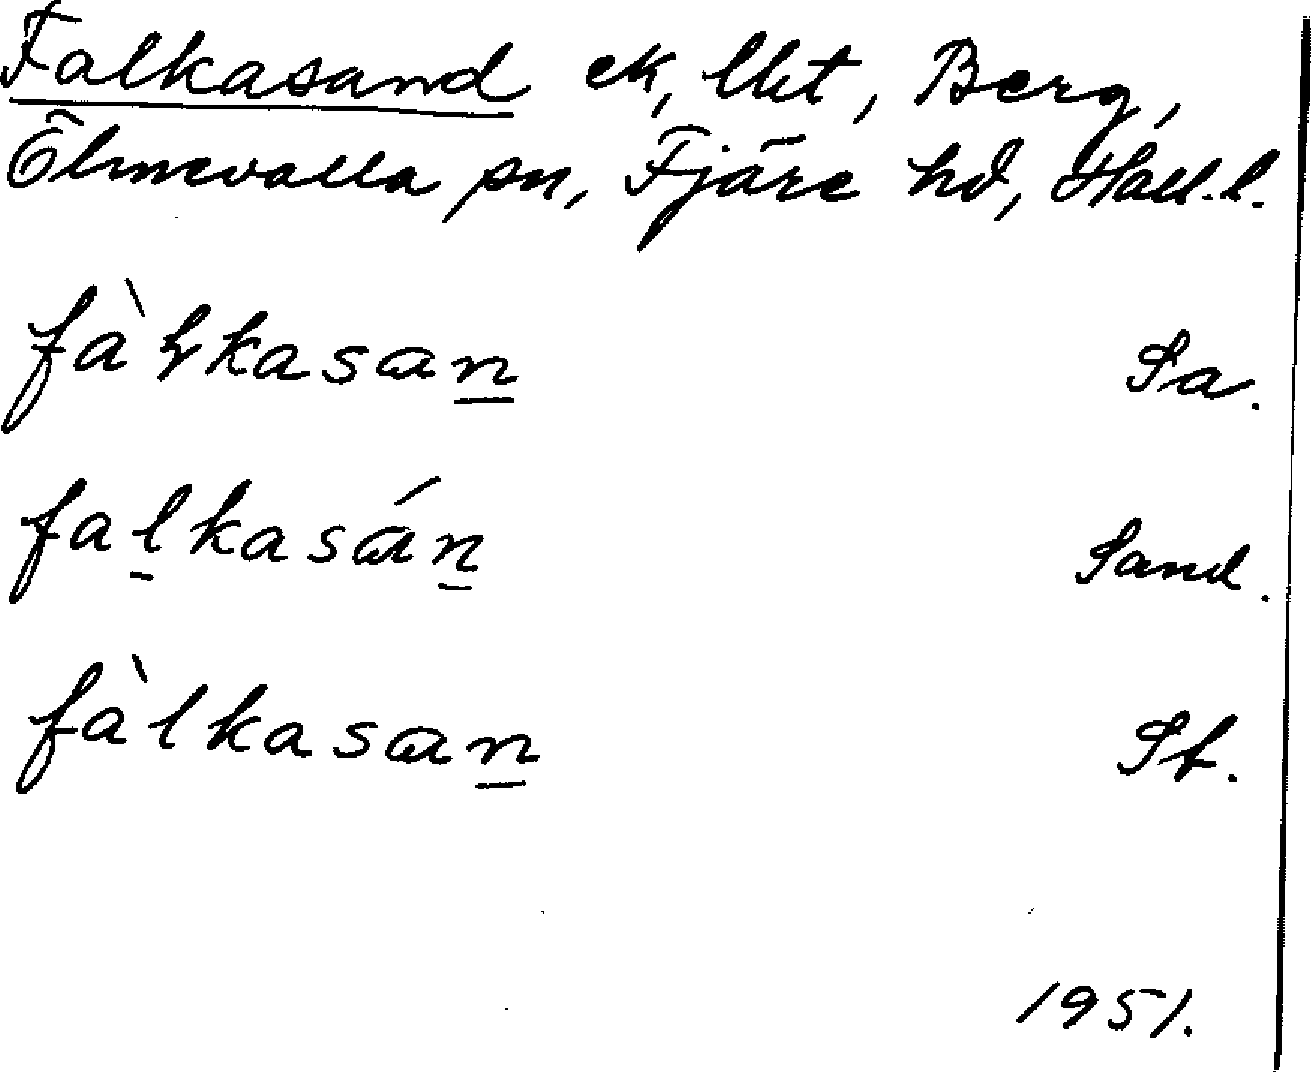 Falkasand ek, lht, Berg,
Ölmevalla sn, Fjäre hd, Hall. l.
fàɽkasan̲ Sa.
fal̲kasán̲ Sand.
fàlkasan̲ St.
1951.